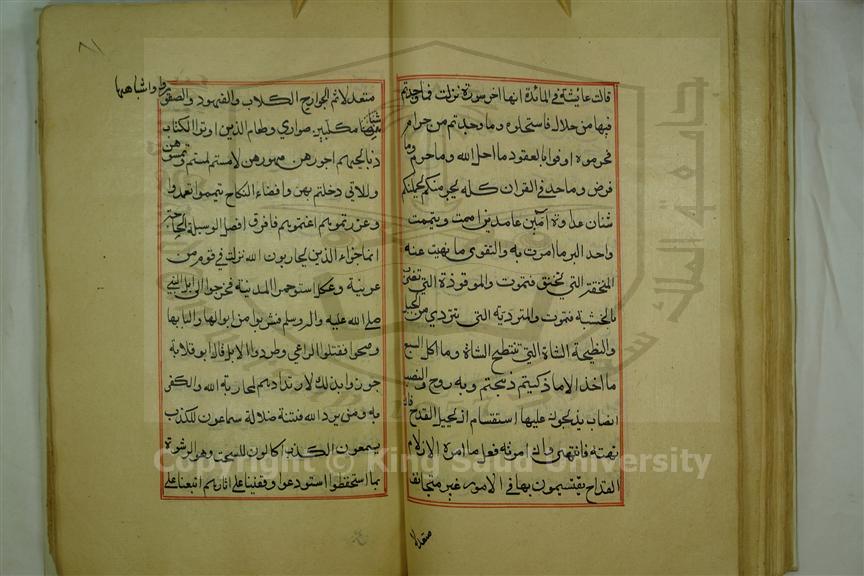 قالت عايشة في المائدة انها اخر سورة نزلت فما وجدتم
فيها من حلال فاستحلوه وما وجدتم من حرام
فحرموه اوفوا بالعقود ما احل الله وما حرم وما
فرض وما حد في القران كله يجرمنكم يحملنكم
شنان عداوة آمين عامدين اممت وتيممت
واحد البر ما امرت به والتقوى ما نهيت عنه
المنخنقة التي تخنق فتموت والموقوذة التي تضرب
بالخشبة فتموت والمتردية التي تتردى من الجبل
والنطيحة الشاة التي تنطح الشاة وما اكل السبع
ما اخذ الا ما ذكيتم ذبحتم وبه روح والنصب
انصاب يذبحون عليها استقسام ان يجيل القداح فان
نهته فانتهى وان امرته فعل ما امره الازلام
القداح يقتسمون بها في الامور غير متجانف
متعد لاثم
٨١
متعد لاثم الجوارح الكلاب والفهود والصقور واشباهها
مكلبين ضواري وطعام الذين اوتوا الكتاب
ذبايحهم اجورهن مهورهن لامستم لمستم وتمسوهن
واللاتي دخلتم بهن وافضاء النكاح تيمموا تعمدوا
وعزرتموهم اعنتموهم فافرق افصل الوسيلة الحاجة
انما جزاء الذين يحاربون الله نزلت في قوم من
عرينة وعكل استوخموا المدينة فخرجوا الى ابل النبي
صلى الله عليه واله وسلم فشربوا من ابوالها والبانها
وصحوا فقتلوا الراعي وطردوا الابل قال ابو قلابة
جوزوا بذلك لارتدادهم لمحاربة الله والكفر
به ومن يرد الله فتنته ضلالة سماعون للكذب
يسمعون الكذب اكالون للسحت وهو الرشوة
بما استحفظوا استودعوا وقفينا على اثارهم اتبعنا على
جامعة الملك سعود
Copyright © King Saud University